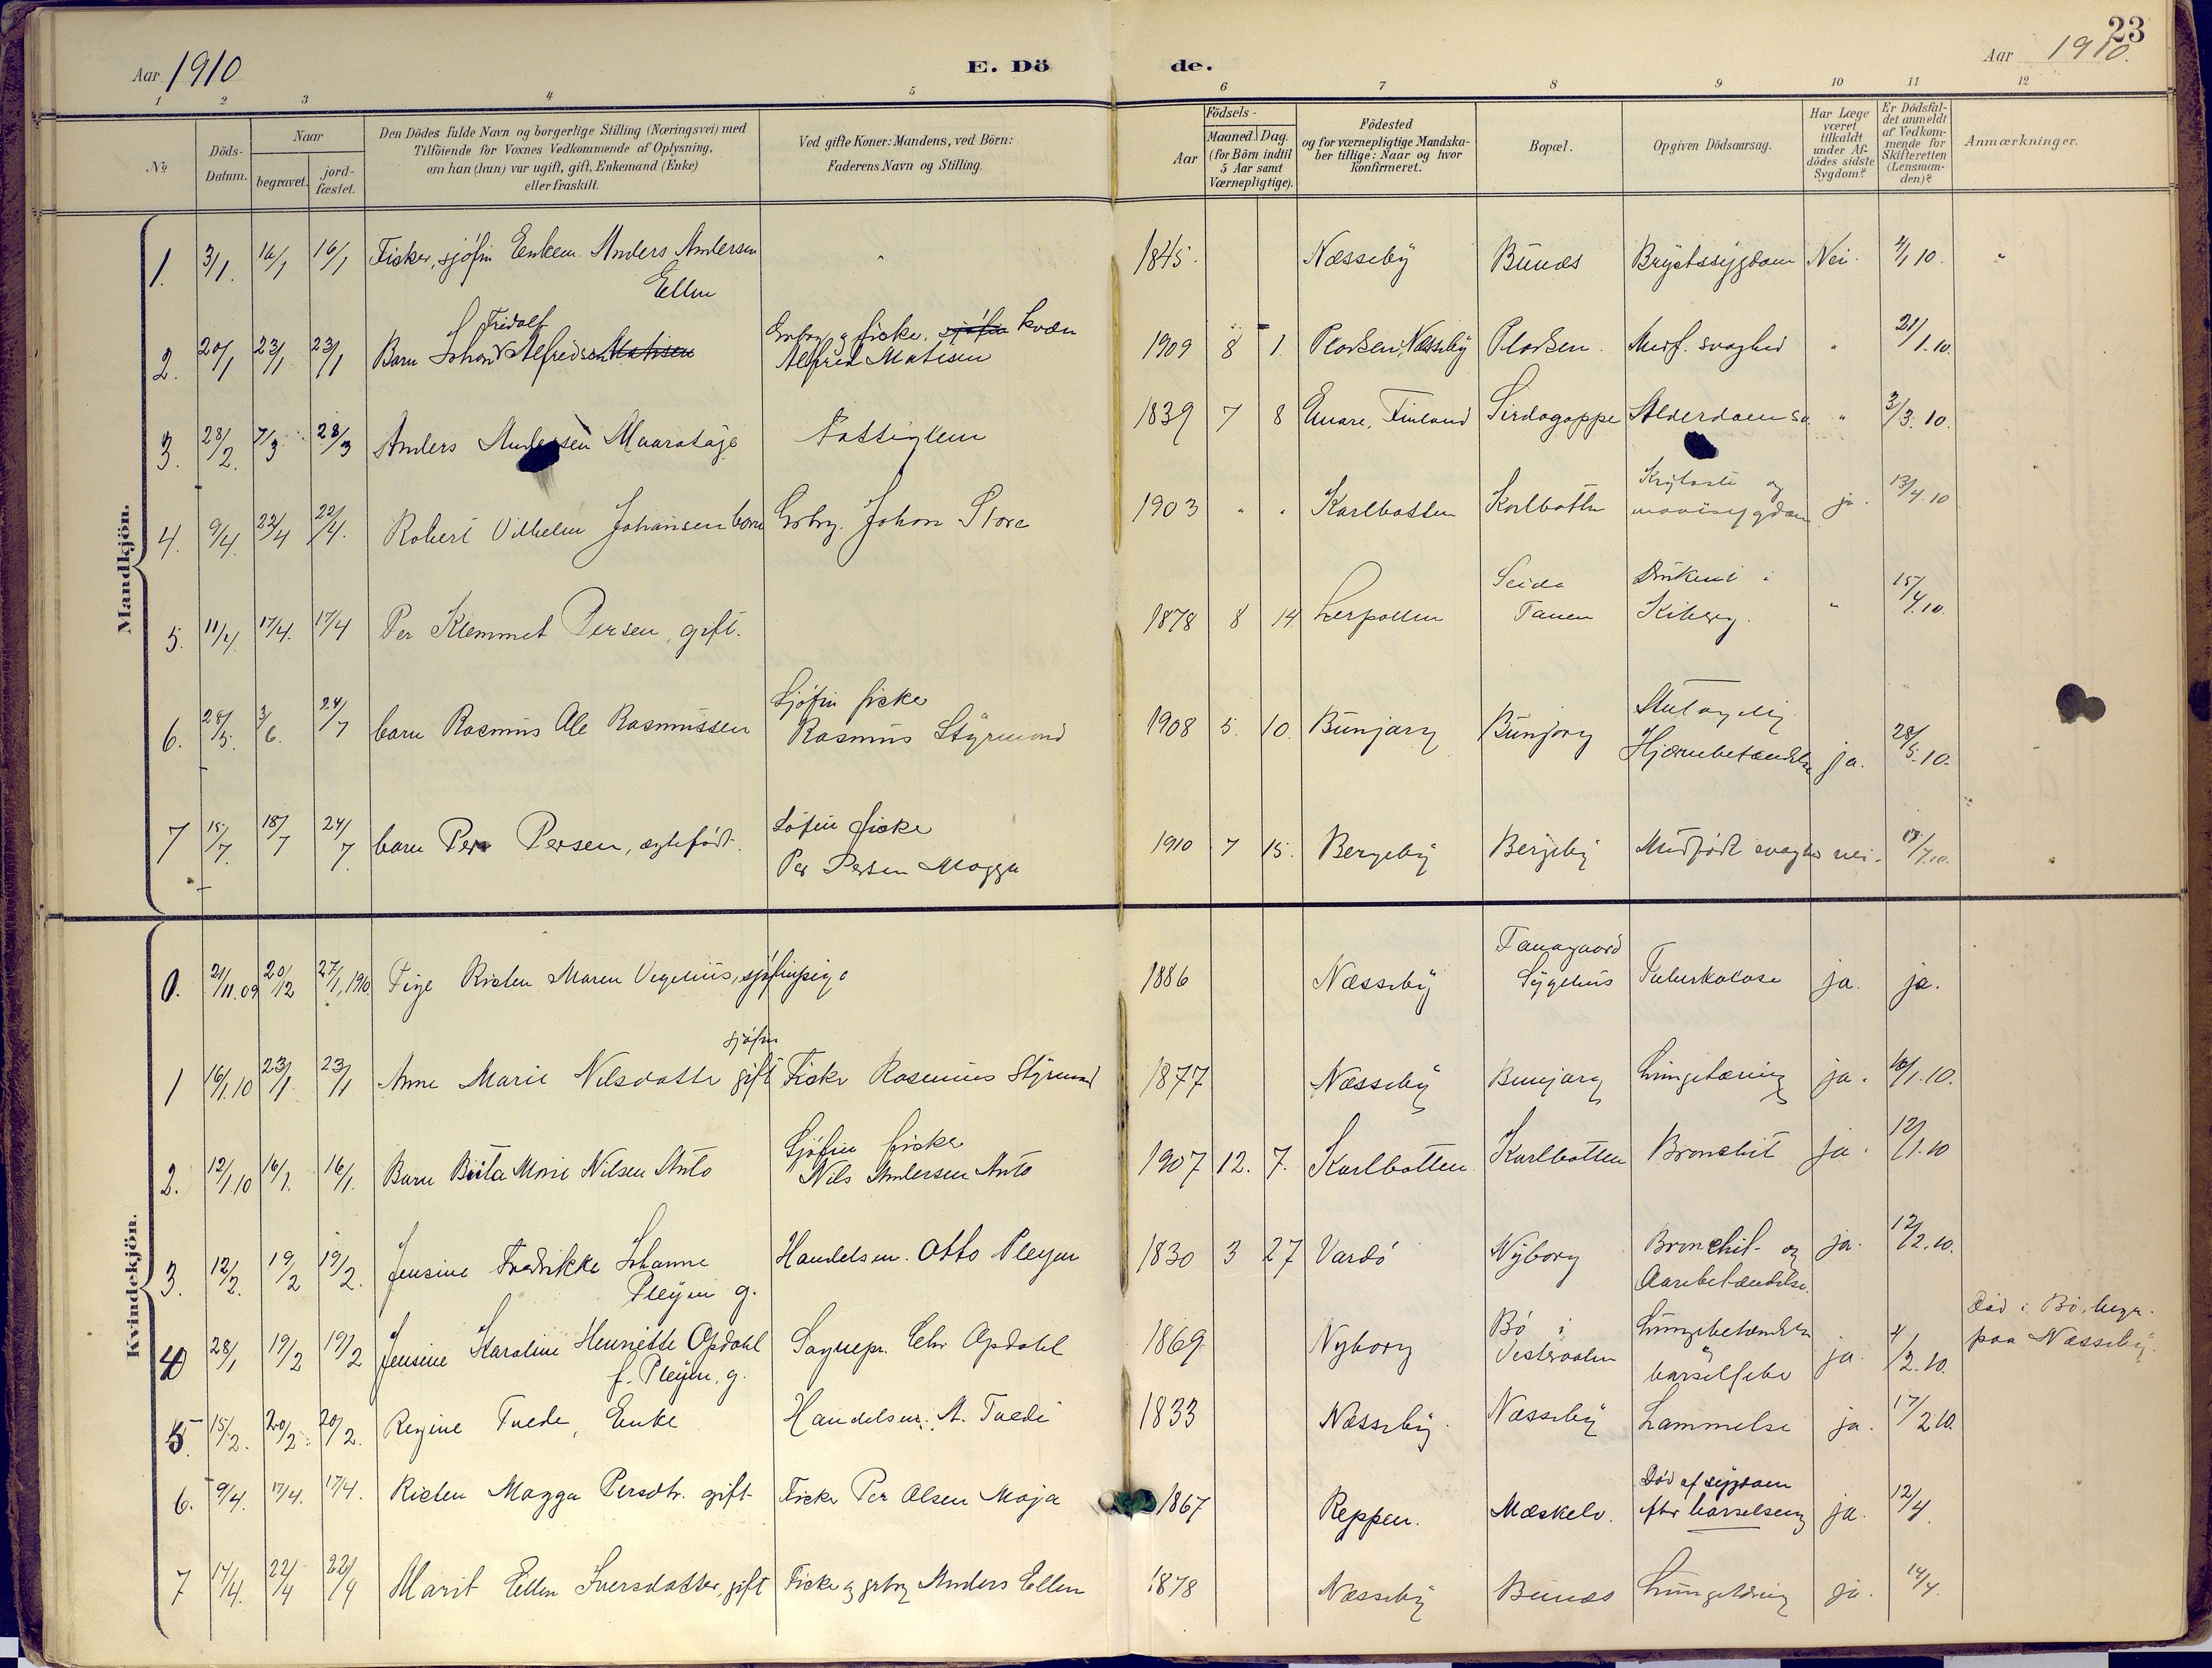 23
Aar 1910
E. Dö de.
Aar 1910.
1 2 3 4 5 6 7 8 9 10 11 12
No
Döds-Datum.
Naar
begravet.
jord-fæstet.
Den Dödes fulde Navn og borgerlige Stilling (Næringsvei) med
Tilföiende for Voxnes Vedkommende af Oplysning,
om han (hun) var ugift, gift, Enkemand (Enke)
eller fraskilt.
Ved gifte Koner: Mandens, ved Börn:
Faderens Navn og Stilling.
Födsels-
Aar
Maaned. Dag.
(for Börn indtil
5 Aar samt
Værnepligtige).
Födested
og for værnepligtige Mandska-
ber tillige: Naar og hvor
Konfirmeret.
Bopæl.
Opgiven Dödsaarsag.
Har Læge
været
tilkaldt
under Af-
dödes sidste
Sygdom?
Er Dödsfal-
det anmeldt
af Vedkom-
mende for
Skifteretten
(Lensman-
den)?
Anmærkninger.
Mandkjön.
1. 3/1. 16/1 16/1 Fisker, sjöfin Enkem. Anders Andersen " 1845. Næsseby Bunæs Brystsygdom Nei. 4/1 10. "
Ellen
Fridolf
2. 20/1 23/1 23/1 Barn Johan Alfredsen Matisen Grbr. og fisker, sjöfin kvæn 1909 8 1. Næsseby Med. svaghed " 21/1.10.
Alfred Matisen
3. 28/2. 7/3 28/3 Anders Andersen Fattiglem 1839 7 8 Enare, Finland Sirdagoppe Alderdomsv. " 3/3. 10.
4. 9/4. 22/4 22/4. Robert Vilhelm Johansen barn Grbrg. Johan Store 1903 " " Karlbotten Karlbotten og ja. 13/4.10
5. 11/4. 17/4. 17/4 Per Klemmet Persen, gift. 1878 8 14. Lerpollen Seida Druknet i " 15/4.10.
Tanen Kiberg.
6. 28/5. 3/6. 24/7 barn Rasmus Ole Rasmussen Sjöfin fisker 1908 5. 10. Bunjarg Bunjarg Hjernebetændelse ja. 28/5.10.
Rasmus Styrmand
7 15/7. 18/7 24/7. barn Per Persen, ægtefödt. Söfin fisker 1910 7 15. Bergeby Bergeby Medfödt svaghed nei. 17/7.10.
Per Persen Magga
Kvindekjön.
0. 21/11.09 20/12 27/1,1910 Pige Risten Maren Vigelius, sjöfinpige 1886 Næsseby Tanagaard Tuberkulose ja. ja.
Sygehus
sjöfin
1 16/1.10 23/1 23/1 Anne Marie Nilsdatter gift Fisker Rasmus Styrmand 1877 Næsseby Bunjarg Lungetæring ja. 18/1.10.
2. 12/1.10 16/1. 16/1. Barn Berta Marie Nilsen Anto Sjöfin fisker 1907 12. 7. Karlbotten Karlbotten Bronchit ja. 12/1.10
Nils Andersen Anto
3. 12/2. 19/2 19/2. Jensine Fredrikke Johanne Handelsm. Otto Pleym 1830 3 27 Vardö Nyborg Bronchit og ja. 12/2.10.
Pleym g. Aarebetændelse.
4 28/1 19/2 19/2 Jensine Karoline Henriette Opdahl Sognepr. Chr Opdahl 1869 Nyborg Bö i Lungebetændelse ja. 4/2.10. Död i Bö, begr.
f. Pleym, g. Vesteraalen og barselfeber paa Næsseby.
5. 15/2. 20/2 20/2. Regine Tvede, Enke Handelsm. A. Tvede 1833 Næsseby. Næsseby Lammelse ja. 17/2 10.
6. 9/4. 17/4. 17/4. Risten Magga Persdtr. gift Fisker Per Olsen Maja 1867 Reppen. Mæskelv. Död af sygdom ja. 12/4.
efter barselseng
7 14/4. 22/4 22/4 Marit Ellen Iversdatter, gift Fisker og grbrg Anders Ellen 1878 Næsseby Bunæs Lungetæring ja. 14/4.